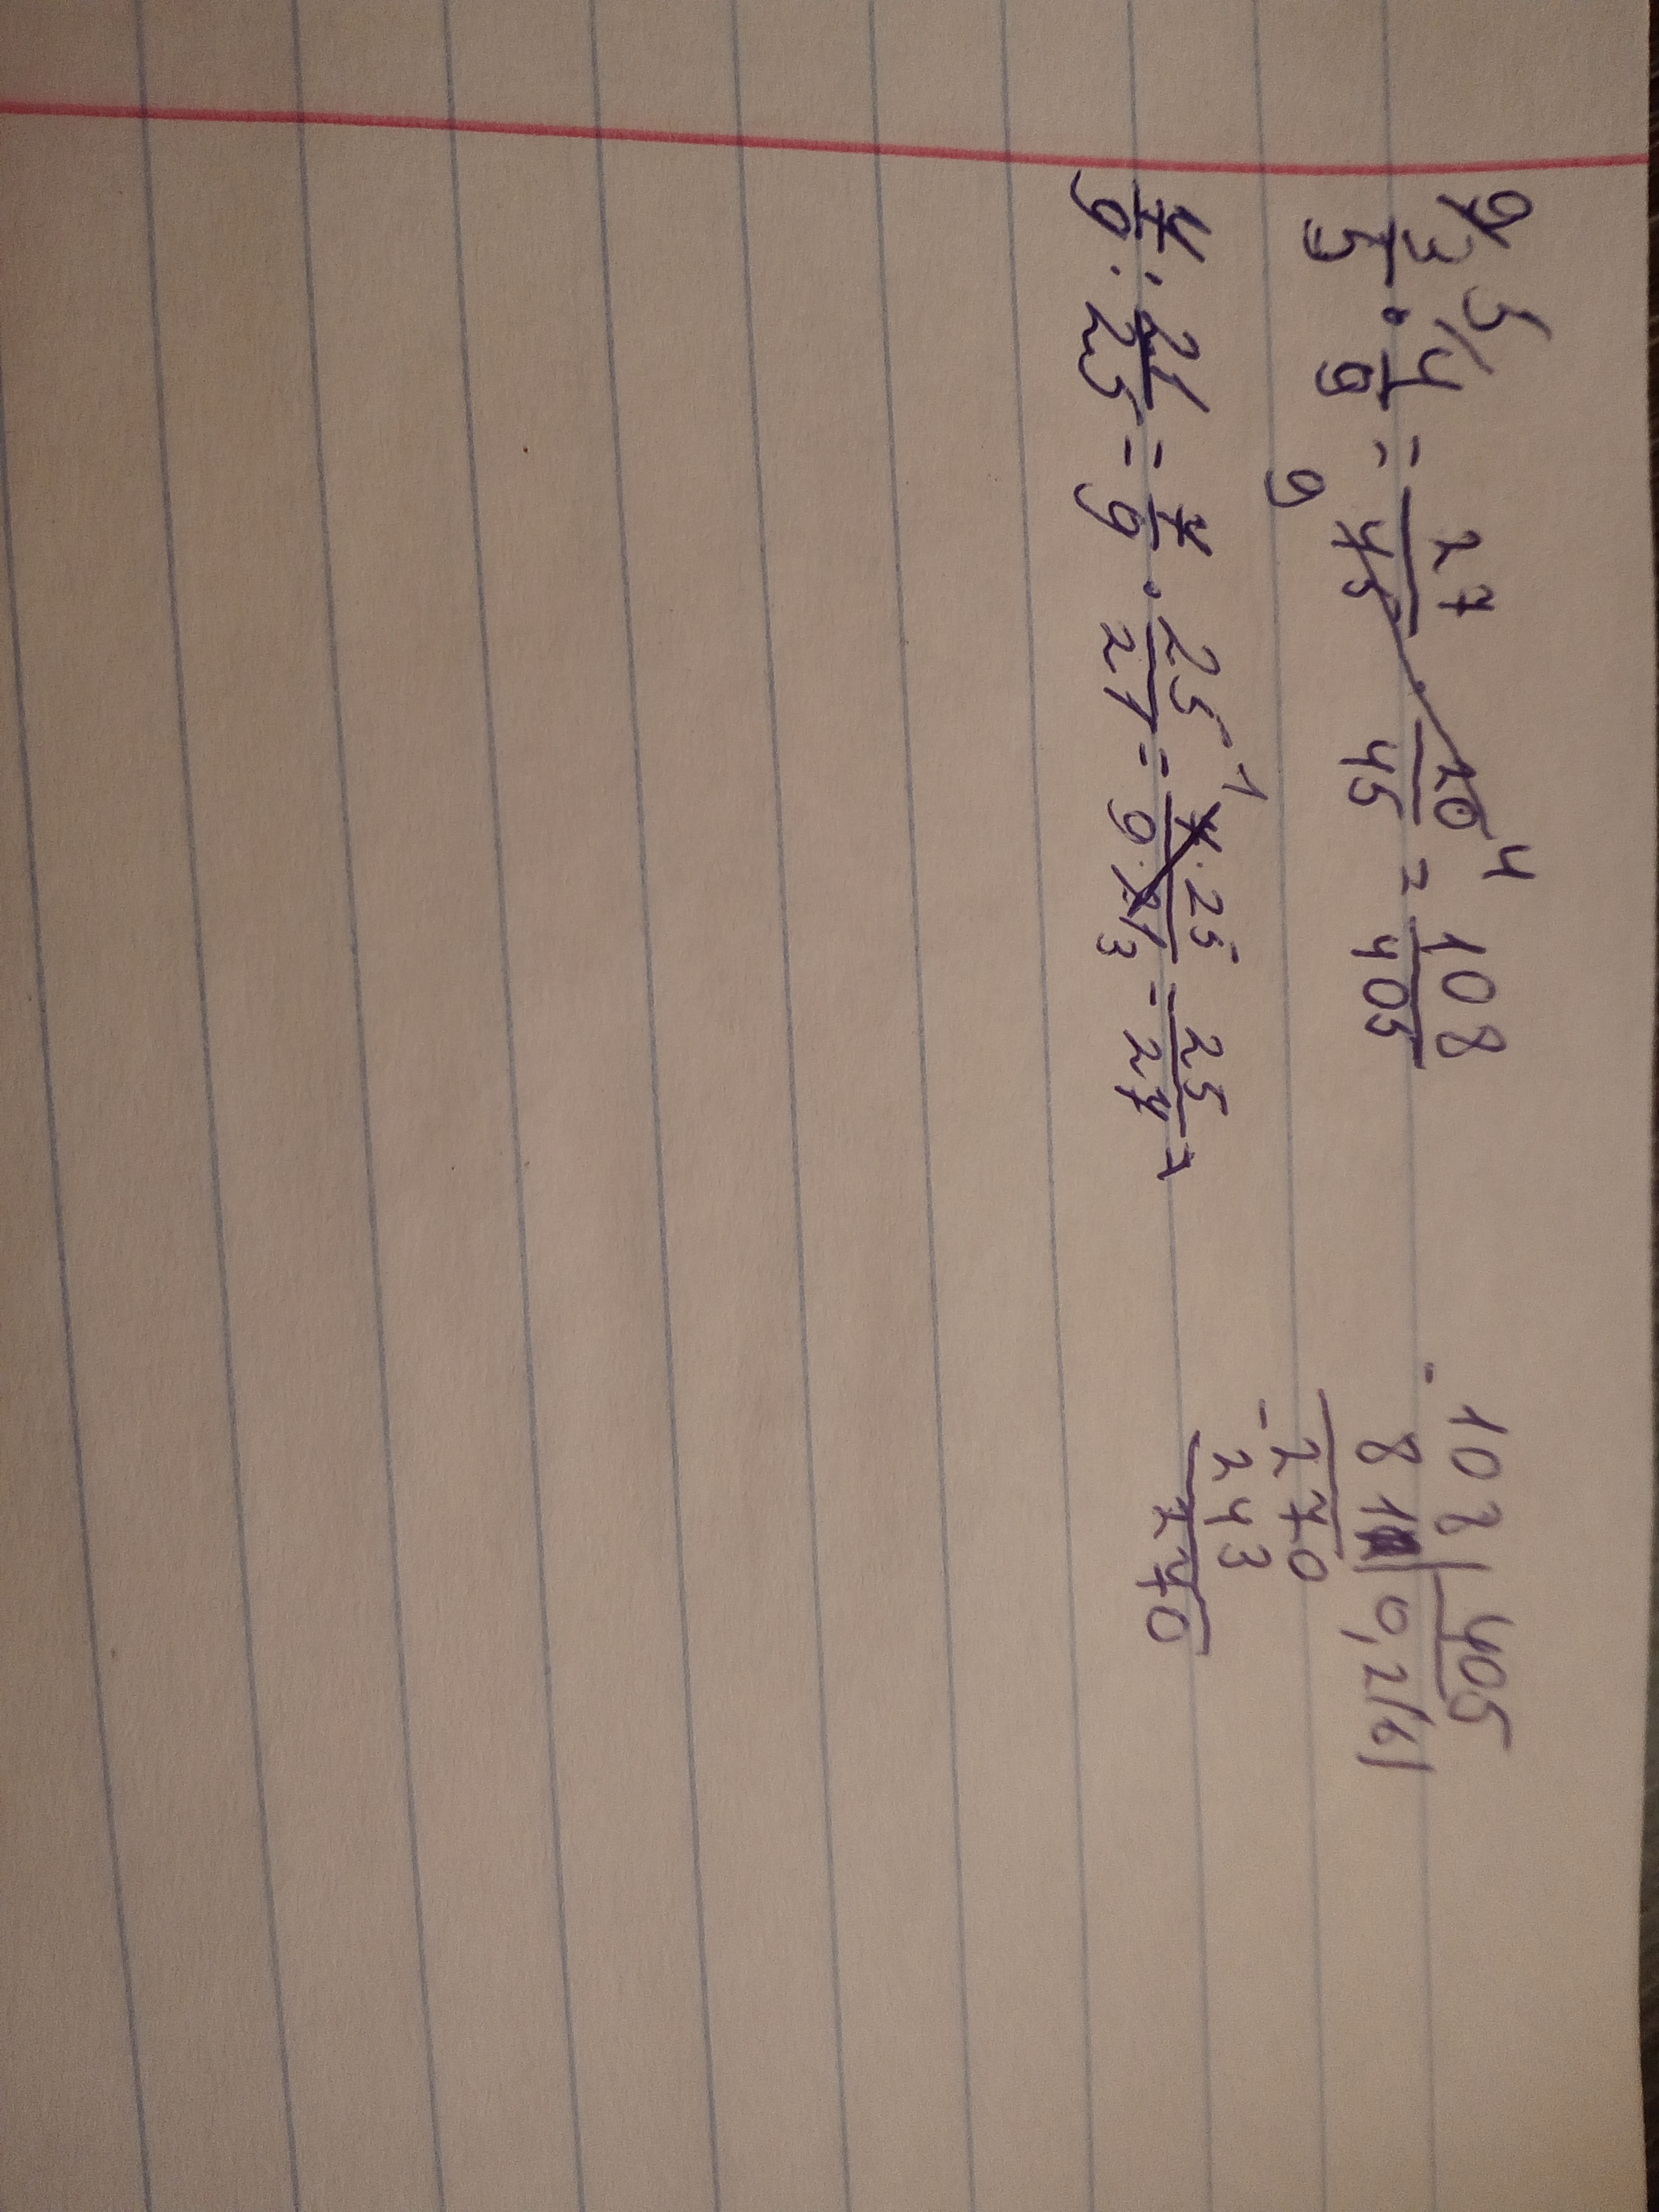 9/ 3/5 · 5/ 4/9 = 27/45 · 20/45 = 108/405
9 4
7/9 : 21/25 = 7/9 · 25/21 = 7·25/9·21 = 25/27
1 3
-108 | 405
810 | 0,2(6)
-270
243
270